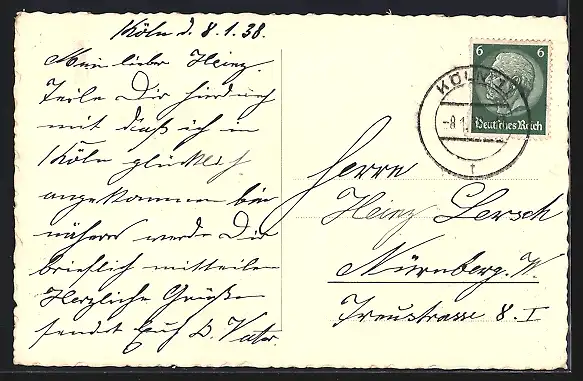 Köln d. 8.1.38.
Mein lieber Heinz.
Teile Dir hierdurch
mit daß ich in
Köln glücklich
angekommen bin
näheres werde Dir
brieflich mitteilen
Herzliche Grüße
sendet Euch D. Vater.
6 6
Deutsches Reich
KÖLN
-8.1.
f
Herrn
Heinz Lersch
Nürnberg. W.
Treustrasse 8. I